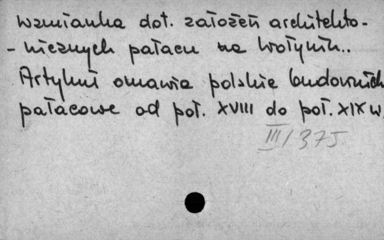 Wzmianka dot. założeń architekto-
-nicznych pałacu na Wołyniu..
Artykuł omawia polskie budownictwo
pałacowe od poł. XVIII do poł. XIX w.
III/375